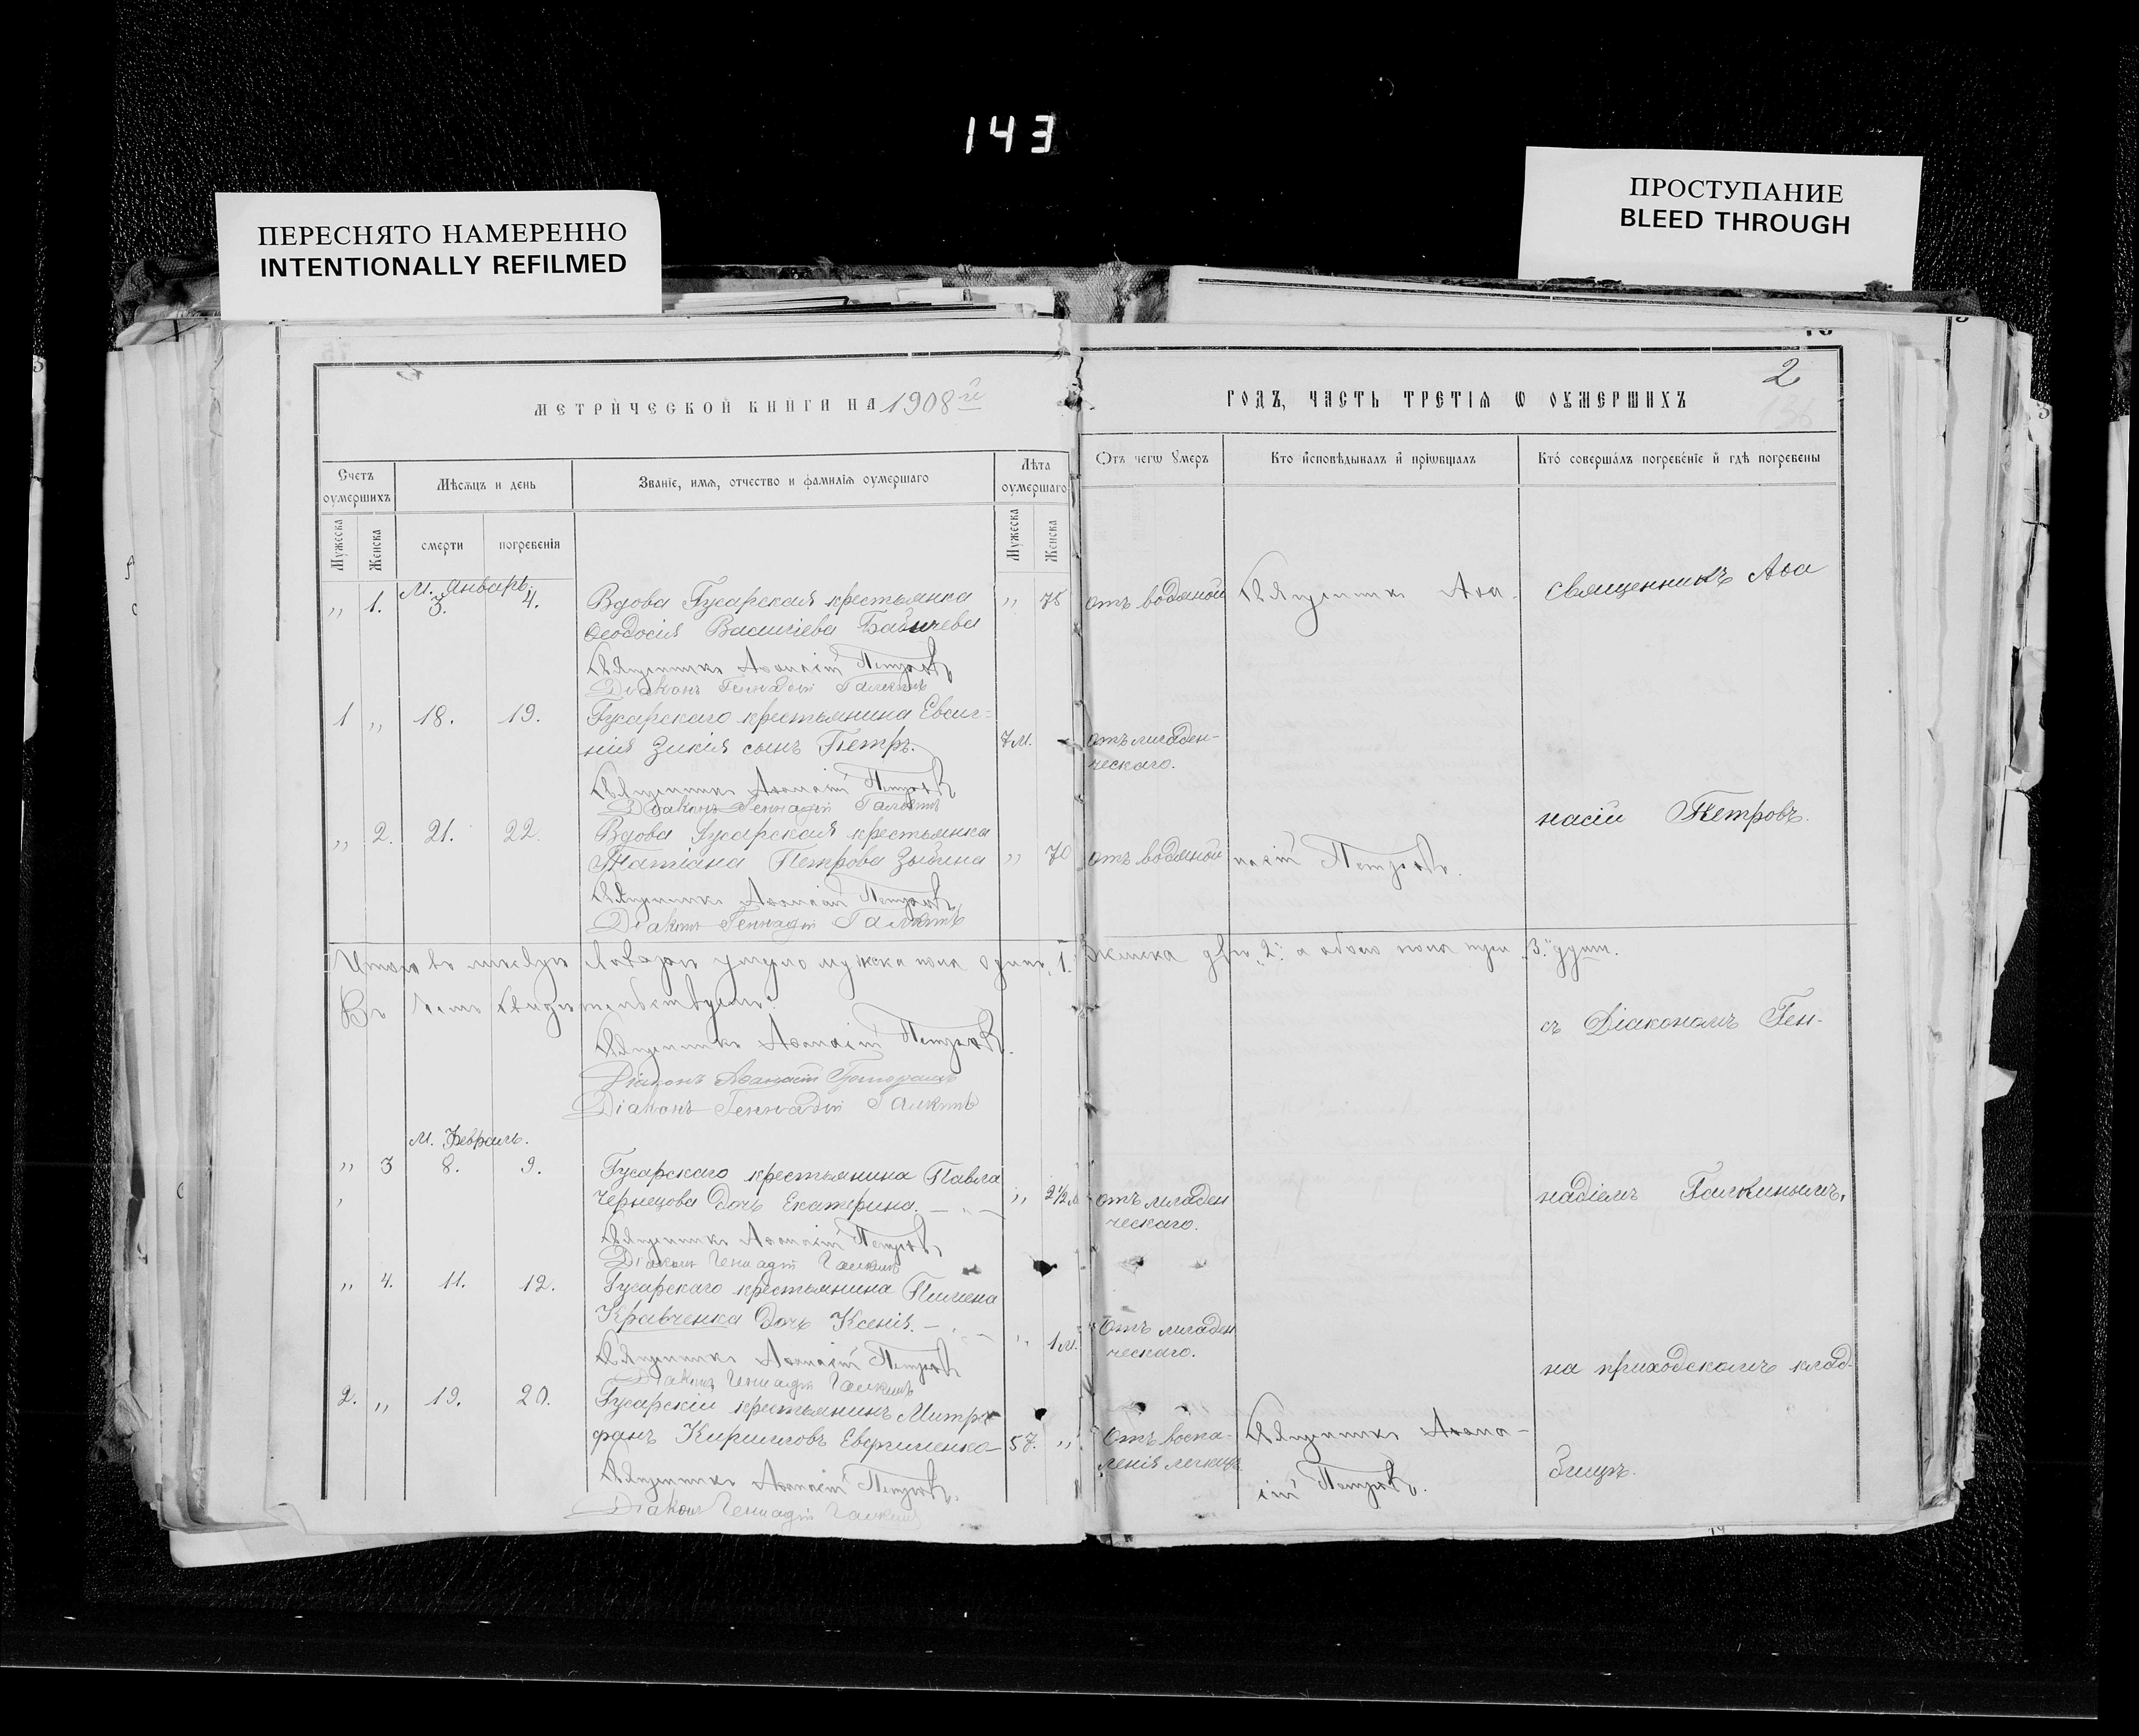 143
ПЕРЕСНЯТО НАМЕРЕННО
INTENTIONALLY REFILMED
ПРОСТУПАНИЕ
BLEED THROUGH
2
МЕТРИЧЕСКОЙ КНИГИ НА 1908 й
ГОДЪ, ЧАСТЬ ТРЕТІЯ Ѡ ОУМЕРШИХЪ
Счетъ оумершихъ
Мѣсяцъ и день
Званіе, имя, отчество и фамилія оумершаго
Лѣта оумершаго
Отъ чегѡ умеръ
Кто исповѣдывалъ и пріѡбщалъ
Кто совершалъ погребеніе и гдѣ погребены
Мужеска
Женска
смерти
погребенія
Мужеска
Женска
М. Январь.
„ 1. 3. 4. Вдова Гусарская крестьянка „ 75 отъ водяной Священникъ Аѳа- Священникъ Аѳа
Ѳеодосія Василіева
Священникъ Аѳанасій Петровъ
Діаконъ Геннадій Галкинъ
1 „ 18. 19. Гусарскаго крестьянина Евсиг=
нія Зикія сынъ Петръ. 7 м. отъ младен-
ческаго.
Священникъ Аѳанасій Петровъ
Діаконъ Геннадій Галкинъ
насій Петровъ.
„ 2. 21. 22. Вдова Гусарская крестьянка
Татіана Петрова Зыбина „ 70 отъ водяной насій Петровъ.
Священникъ Аѳанасій Петровъ
Діаконъ Геннадій Галкинъ
Итого въ мѣсяцѣ Январѣ умерло мужска пола одинъ, 1. Женска двѣ „2„ а обоего пола три „3„ души.
Въ чемъ свидѣтельствуемъ:
Священникъ Аѳанасій Петровъ.
съ Діакономъ Ген-
Діаконъ Аѳанасій
Діаконъ Геннадій Галкинъ
М. Февраль.
„ 3 8. 9. Гусарскаго крестьянина Павла
Чернецова дочь Екатерина. „ 2½ м отъ младен
ческаго.
надіемъ Галкинымъ,
Священникъ Аѳанасій Петровъ
Діаконъ Геннадій Галкинъ
„ 4. 11. 12. Гусарскаго крестьянина Пимена
Кравченка дочь Ксенія. „ 1 м. Отъ младен
ческаго.
Священникъ Аѳанасій Петровъ
на приходскомъ клад-
Діаконъ Геннадій Галкинъ
2. „ 19. 20. Гусарскій крестьянинъ Митро
фанъ Кирилловъ 57. „ Отъ воспа- Священникъ Аѳана-
ленія легкихъ сій Петровъ.
бищѣ.
Священникъ Аѳанасій Петровъ.
Діаконъ Геннадій Галкинъ